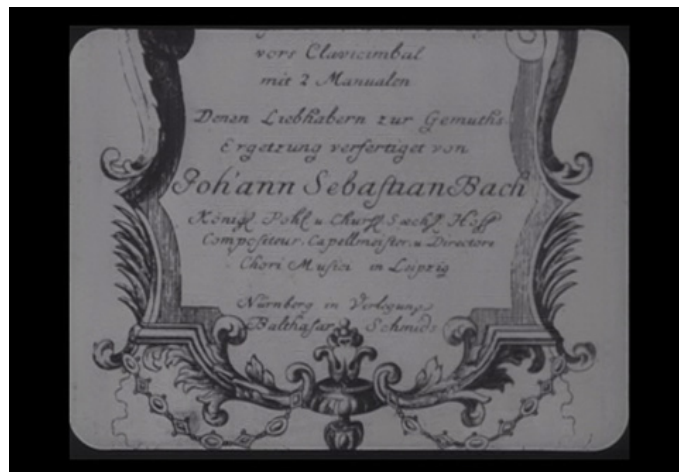 vors Clavicimbal
mit 2 Manualen
Denen Liebhabern zur Gemüths-
Ergetzung verfertiget von
Johann Sebastian Bach
Königl. Pohl. u. Churfl. Sæchs. Hoff-
Compositeur, Capellmeister, u. Directore
Chori Musici in Leipzig
Nürnberg in Verlegung
Balthasar Schmids